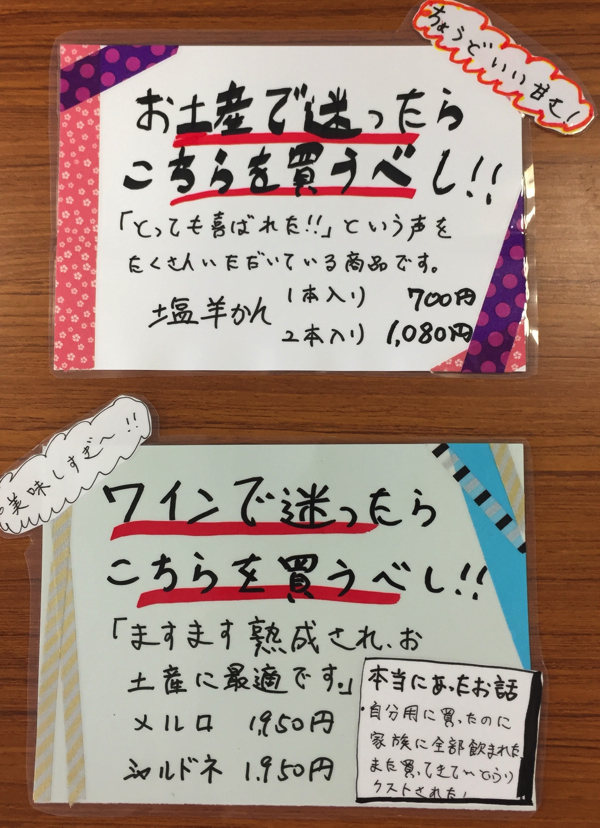 ちょうどいい甘さ!
お土産で迷ったら
こちらを買うべし!!
「とっても喜ばれた!!」という声を
たくさんいただいている商品です。
塩羊かん
1本入り 700円
2本入り 1,080円
美味しすぎ〜!!
ワインで迷ったら
こちらを買うべし!!
「ますます熟成され、お
土産に最適です。」
メルロ 1,950円
シャルドネ 1.950円
本当にあったお話
・自分用に買ったのに
家族に全部飲まれた。
また買ってきてとい
クストされた!